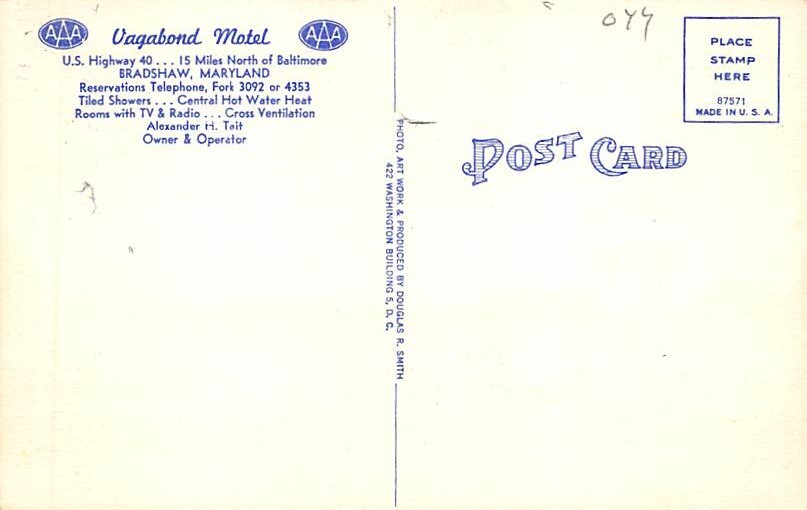 AAA Vagabond Motel AAA
U.S. Highway 40 . . . 15 Miles North of Baltimore
BRADSHAW, MARYLAND
Reservations Telephone, Fork 3092 or 4353
Tiled Showers . . . Central Hot Water Heat
Rooms with TV & Radio . . . Cross Ventilation
Alexander H. Tait
Owner & Operator
PHOTO, ART WORK & PRODUCED BY DOUGLAS R. SMITH
422 WASHINGTON BUILDING 5, D. C.
POST CARD
PLACE
STAMP
HERE
87571
MADE IN U. S. A.